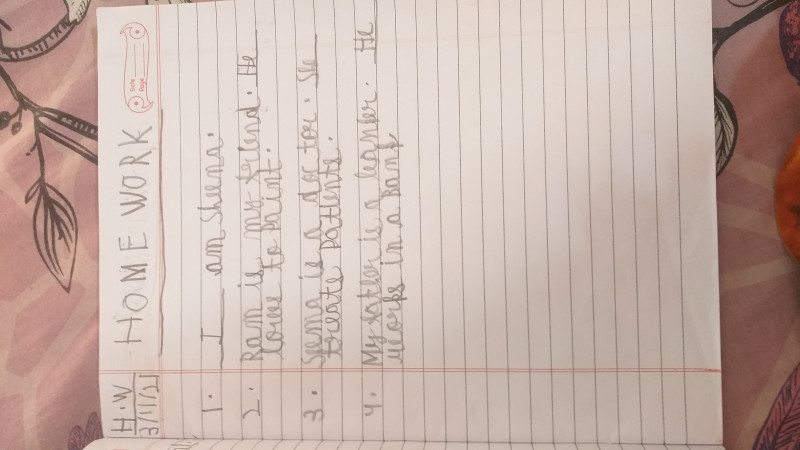 H.W
HOME WORK
Date
Page
1. I am Sheena.
2. Ram is my friend. He
loves to Paint.
3. Seema is a doctor. She
treate Patients.
4. My father is a learner. He
works in a Bank